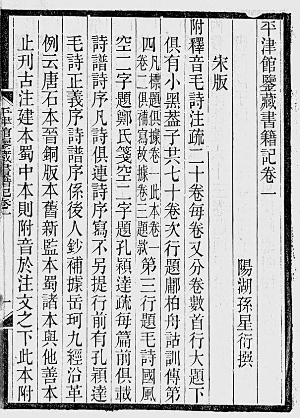 平津館鑒藏書籍記卷一
陽湖孫星衍撰
宋版
附釋音毛詩注疏二十卷每卷又分卷數首行大題下
俱有小黑蓋子共七十卷次行題鄘柏舟詁訓傳第
四凡標題俱據卷一此本卷一卷二俱補寫故據卷三題款第三行題毛詩國風
空二字題鄭氏箋空二字題孔穎達疏每篇前俱載
詩譜詩序凡詩俱連詩序寫不另提行前有孔穎達
毛詩正義序詩譜序係後人鈔補據岳珂九經沿革
例云唐石本晉銅版本舊新監本蜀諸本與他善本
止刊古注建本蜀中本則附音於注文之下此本附
平津館鑒藏書籍記卷一